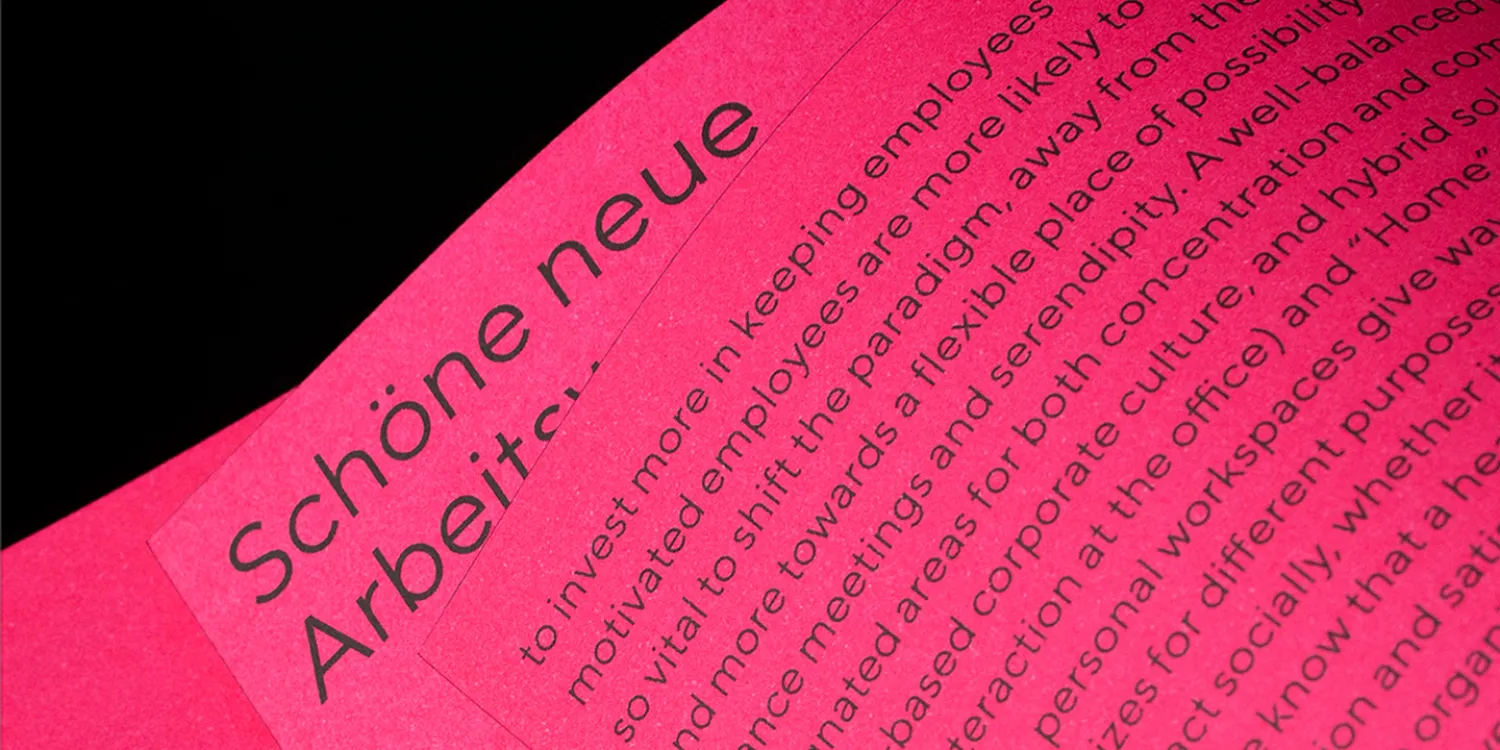 Schöne neue
Arbeits
to invest more in keeping employees
motivated employees are more likely to
so vital to shift the paradigm, away from the
and more towards a flexible place of possibility
meetings and serendipity. A well-balanced
areas for both concentration and
based corporate culture, and hybrid
at the office) and “Home”
personal workspaces give way
for different purposes
socially, whether
know that a
and